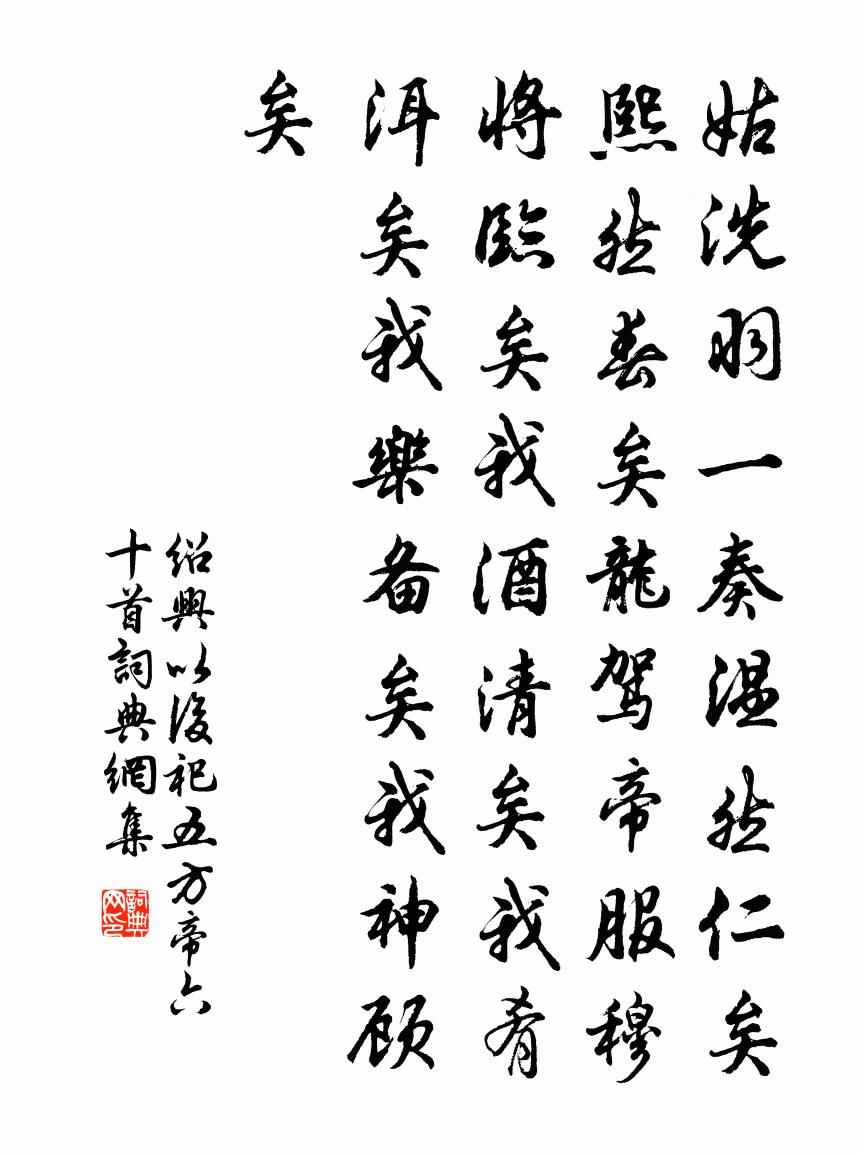 姑洗羽一奏温然仁矣
熙然春矣龍駕帝服穆
将臨矣我酒清矣我肴
洱矣我樂备矣我神顾
矣
绍興以後祀五方帝六
十首詞典網集
詞典
网印